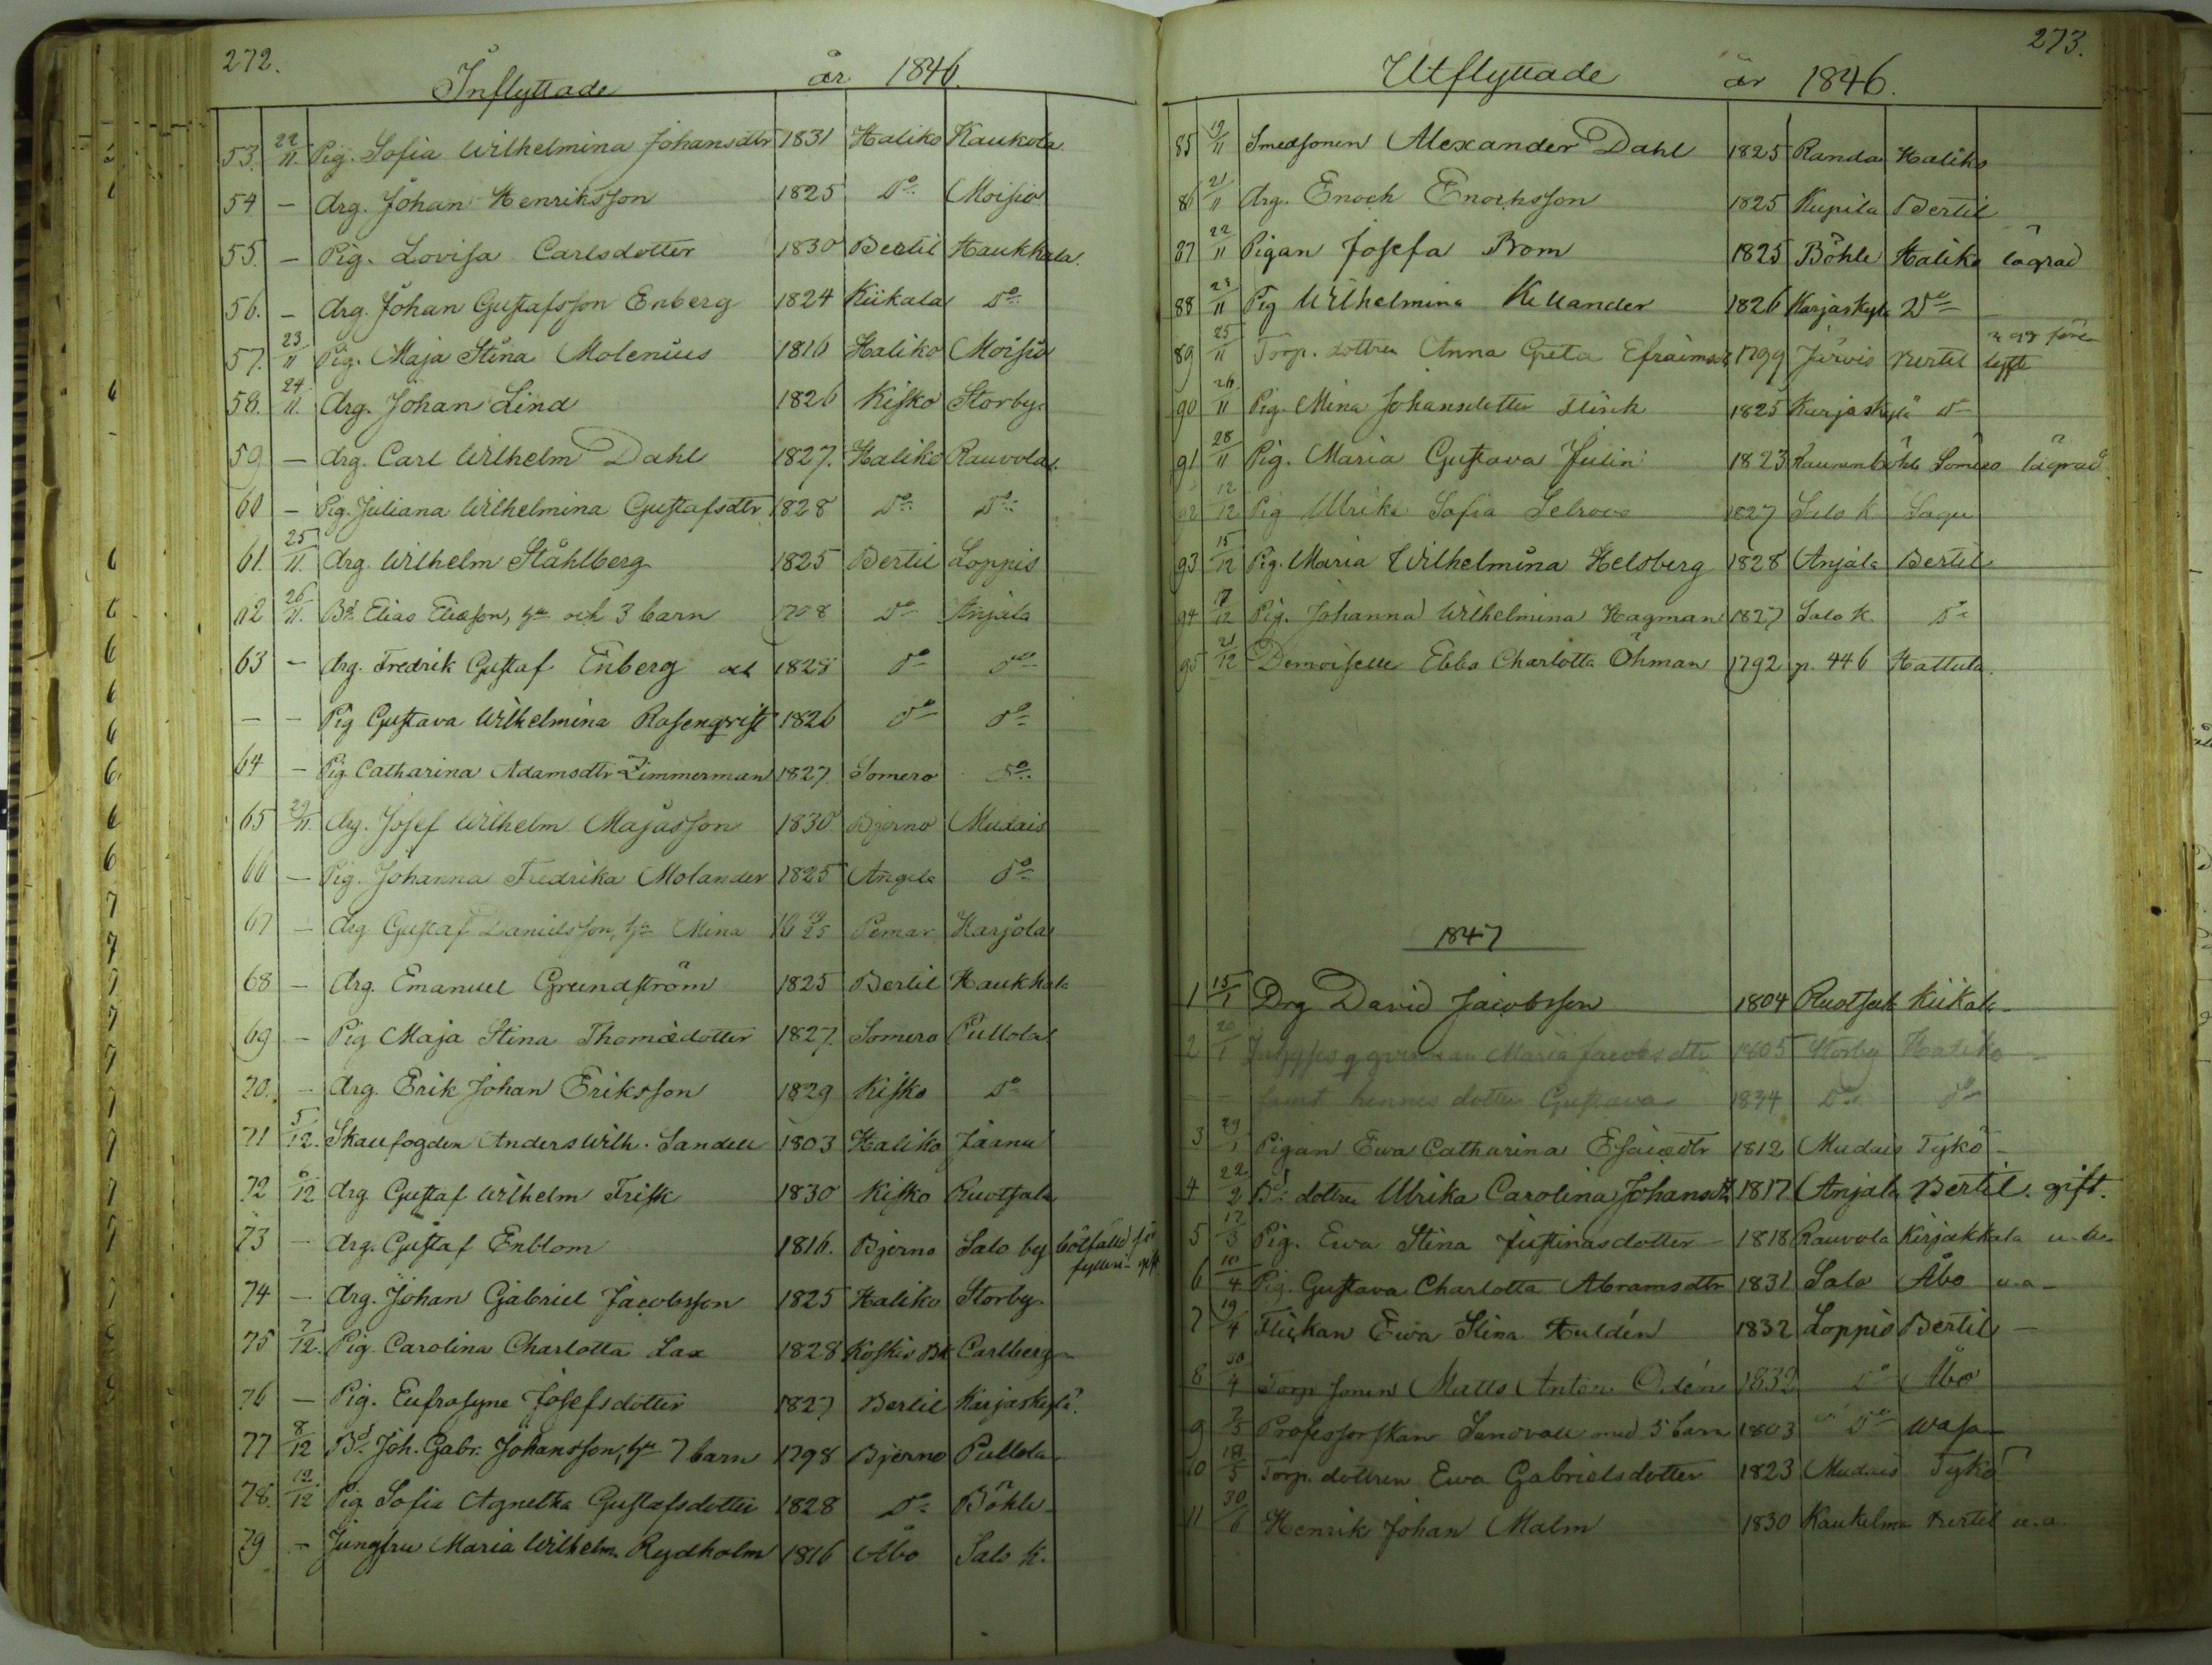 272.
Inflyttade år 1846.
53. 22/11. Pig. Sofia Wilhelmina Johansdtr 1831 Haliko Kaukola
54 — drg. Johan Henriksson 1825 Do Moisio
55. — Pig. Lovisa Carlsdotter 1830 Bertil Haukkala.
56. — drg. Johan Gustafsson Enberg 1824 Kiikala Do
57. 23/11 Pig. Maja Stina Molenius 1816 Haliko Moisio
58. 24/11. drg. Johan Lind 1826 Kisko Storby.
59 — drg. Carl Wilhelm Dahl 1827. Haliko Rauvola
60 — Pig. Juliana Wilhelmina Gustafsdtr 1828 Do Do
61. 25/11. drg. Wilhelm Ståhlberg 1825 Bertil Loppis
62 26/11. Bd. Elias Eliasson, hu och 3 barn Do Anjala
63 — drg. Fredrik Gustaf Enberg och 1828 Do Do
— — Pig Gustava Wilhelmina Rosenqvist 1826 Do Do
64 — Pig Catharina Adamsdtr Zimmerman 1827. Somero Do
65 29/11. drg. Josef Wilhelm Majasson 1830 Bjerno Mudais
66 — Pig. Johanna Fredrika Molander 1825 Angela Do
67 — drg Gustaf Danielsson, hu Mina Pemar Harjola
68 — drg. Emanuel Grundström 1825 Bertil Haukkala
69 — Pig Maja Stina Thomædotter 1827. Somero Pullola
70. — drg. Erik Johan Eriksson 1829 Kisko Do
71 5/12. Skaufogden Anders Wilh. Sandell 1803 Haliko
72 6/12 drg Gustaf Wilhelm Frisk 1830 Kisko Ruotsala
73 — drg. Gustaf Enblom 1816. Bjerno Salo by botfälld för fylleri
74 — drg. Johan Gabriel Jacobsson 1825 Haliko Storby
75 7/12. Pig Carolina Charlotta Lax 1828 Koskis Bk Carlberg
76 — Pig. Eufrosyne Josefsdotter 1827 Bertil Karjaskylä
77 8/12 Bd. Joh. Gabr. Johansson, hu 7 barn 1798 Bjerno Pullola
78. 12/12 Pig Sofia Agnetha Gustafsdotter 1828 Do Böhle
79 — Jungfru Maria Wilhelm. Rydholm 1816 Åbo Salo K.
273.
Utflyttade år 1846.
85 19/11 Smedsonen Alexander Dahl 1825 Randa Haliko
86 21/11 drg. Enoch Enochsson 1825 Kupila Bertil
87 22/11 Pigan Josefa Brom 1825 Böhle Haliko lägrad
88 23/11 Pig Wilhelmina Kellander 1826 Karjaskylä Do
89 25/11 Torp. dottren Anna Greta Efraimsdr 1799 Järvis Bertil
90 26/11 Pig. Mina Johansdotter Flink 1825 Karjaskylä Do
91 28/11 Pig. Maria Gustava Julin 1823 Somero lägrad
92 12/12 Pig Ulrika Sofia 1827 Salo K. Sagu
93 15/12 Pig. Maria Wilhelmina Helsberg 1828 Anjala Bertil
94 17/12 Pig. Johanna Wilhelmina Hagman 1827 Salo K. Do
95 21/12 Demoiselle Ebba Charlotta Öhman 1792 p. 446 Hattula.
1847
1 15/1 Drg David Jacobsson 1804 Ruotsala Kiikala
2 20/1 Maria Jacobsdtr 1805 Storby Haliko
— — samt hennes dotter Gustava 1834 Do Do
3 29/1 Pigan Ewa Catharina Esaiædtr 1812 Mudais Tykö
4 22/2 Bd. dottren Ulrika Carolina Johansdtr 1817. Anjala Bertil. gift.
5 17/3 Pig. Ewa Stina Justinasdotter 1818 Rauvola Kirjakkala u.a.
6 10/4 Pig. Gustava Charlotta Abramsdtr 1831 Salo Åbo u.a
7 19/4 Flickan Ewa Stina Huldén 1832 Loppis Bertil
8 30/4 Torp sonen Matts Anton Odén 1832 Do Åbo
9 7/5 Professorskan Sundvall med 5 barn 1803 Do Wasa
10 18/5 Torp. dottren Ewa Gabrielsdotter 1823 Mudais Tykö
11 30/6 Henrik Johan Malm 1830 Kaukelma Bertil u.a.